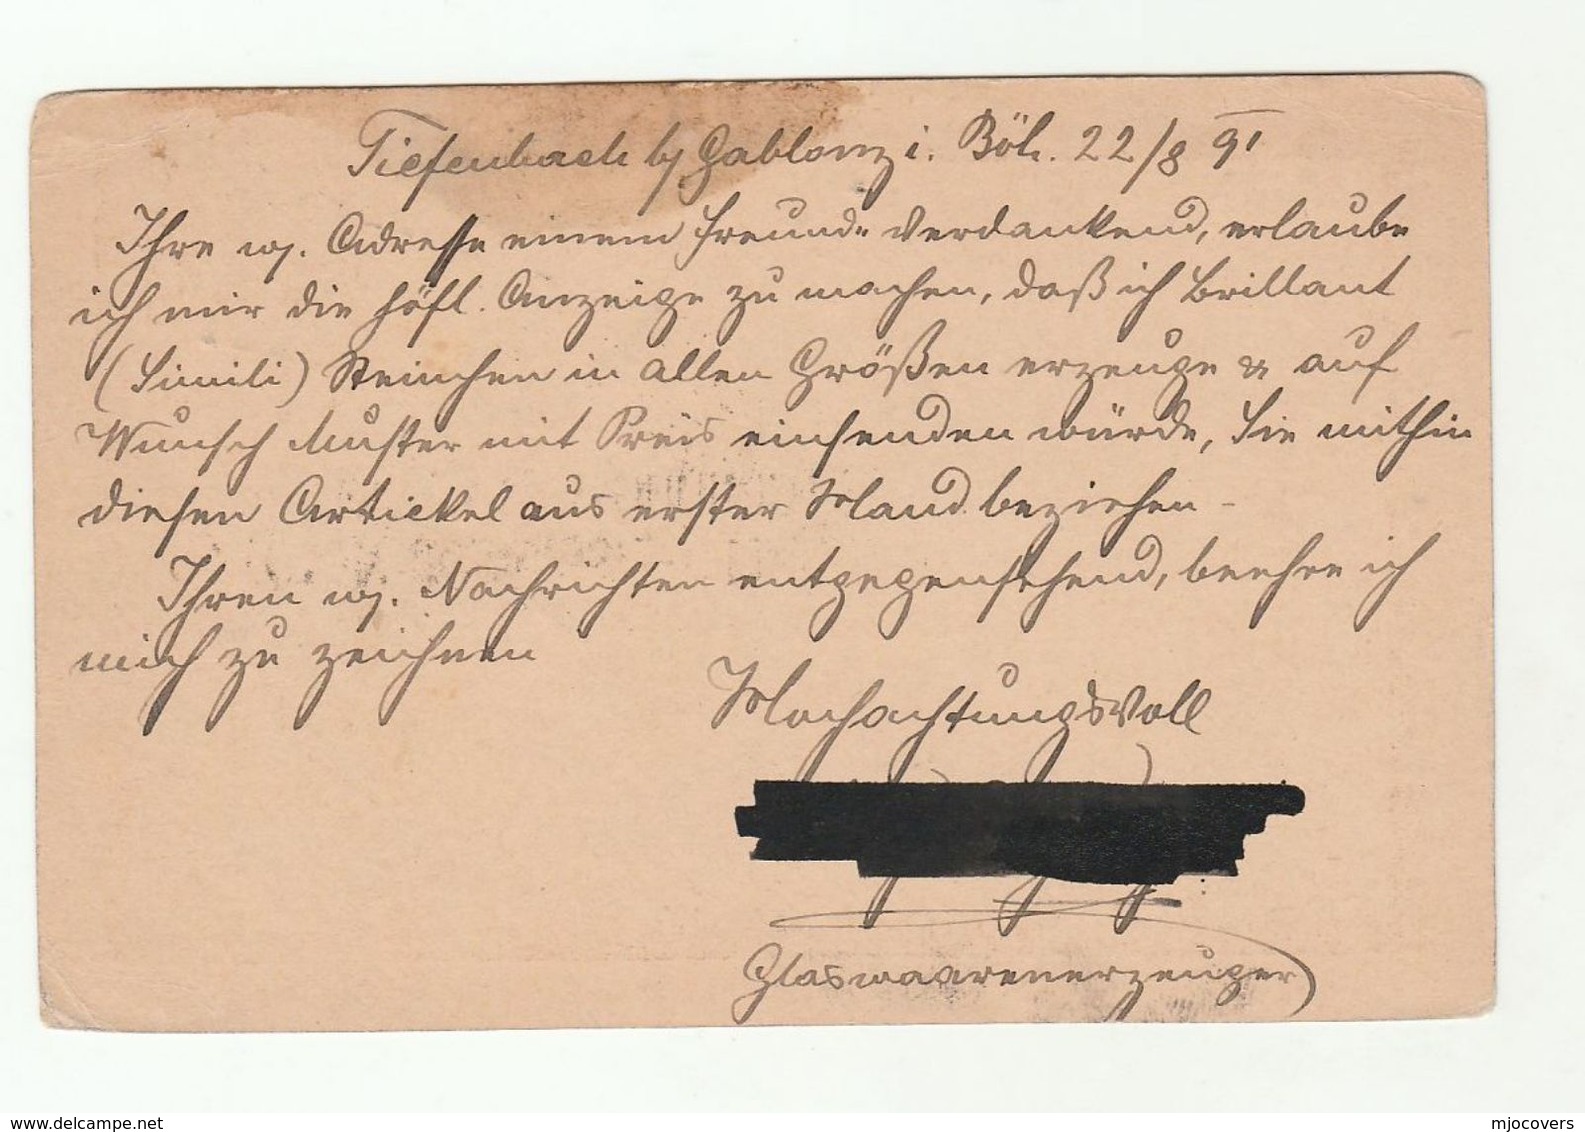 Tiefenbach b/ Gablonz i. Böh. 22/8 91
Ihre w. Adresse einem Freunde verdankend, erlaube
ich mir die höfl. Anzeige zu machen, daß ich Brillant
(Simili) Steinchen in allen Größen erzeuge & auf
Wunsch Muster mit Preis einsenden würde, Sie mithin
diesen Artickel aus erster Hand beziehen –
Ihren w. Nachrichten entgegensehend, beehre ich
mich zu zeichnen
Hochachtungsvoll
Glaswaarenerzeuger
www.delcampe.net
mjocovers